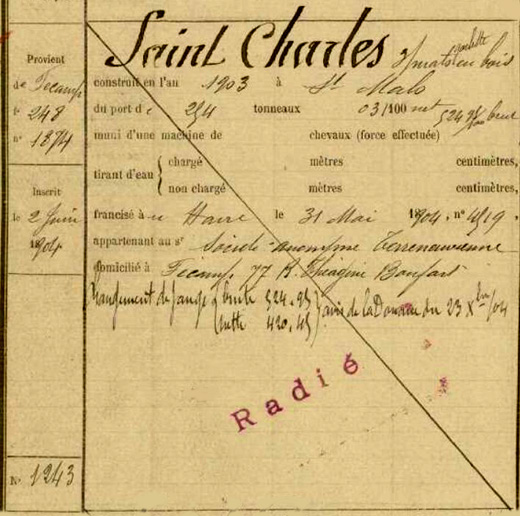 Saint Charles 3 mats goelette en bois
Provient
de Fécamp
fº 248
nº 1874
construit en l'an 1903 à St Malo
du port de 254 tonneaux 03/100 net 324 95/100 brut
muni d'une machine de chevaux (force effectuée)
tirant d'eau { chargé mètres centimètres,
non chargé mètres centimètres,
Inscrit
le 2 Juin
1904
francisé à u Havre le 31 Mai 1904, nº 4519.
appartenant au sr Société anonyme Terreneuvienne
domicilié à Fécamp 77 R. Théagène Boufart
Changement de jauge { brute 524.95
nette 420.45 } avis de la Douane du 23 Xbre /04
Radié
Nº 1243